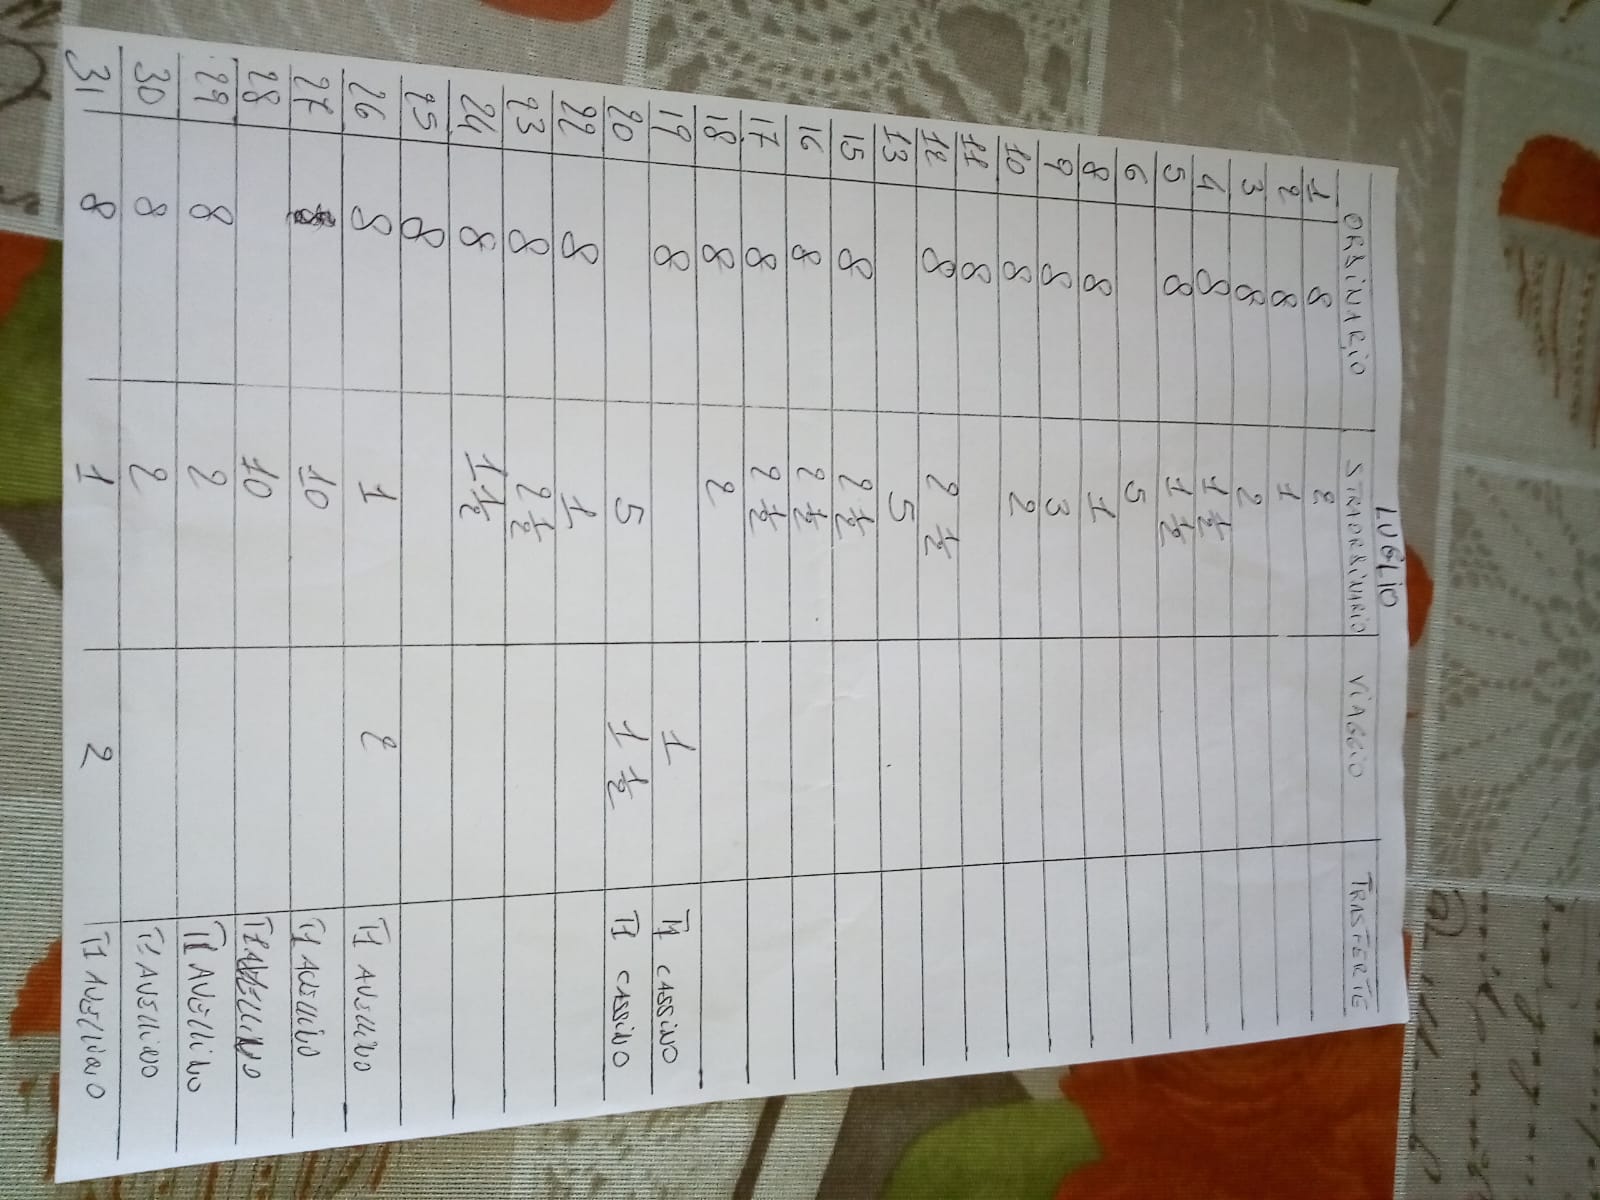 LUGLIO
ORDINARIO STRAORDINARIO VIAGGIO TRASFERTE
1 8 2
2 8 1
3 8 2
4 8 1 1/2
5 8 1 1/2
6 5
8 8 1
9 8 3
10 8 2
11 8
12 8 2 1/2
13 5
15 8 2 1/2
16 8 2 1/2
17 8 2 1/2
18 8 2
19 8 1 T1 CASSINO
20 5 1 1/2 T1 CASSINO
22 8 1
23 8 2 1/2
24 8 1 1/2
25 8
26 8 1 2 T1 AVELLINO
27 10 T1 AVELLINO
28 10 T1 AVELLINO
29 8 2 T1 AVELLINO
30 8 2 T1 AVELLINO
31 8 1 2 T1 AVELLINO